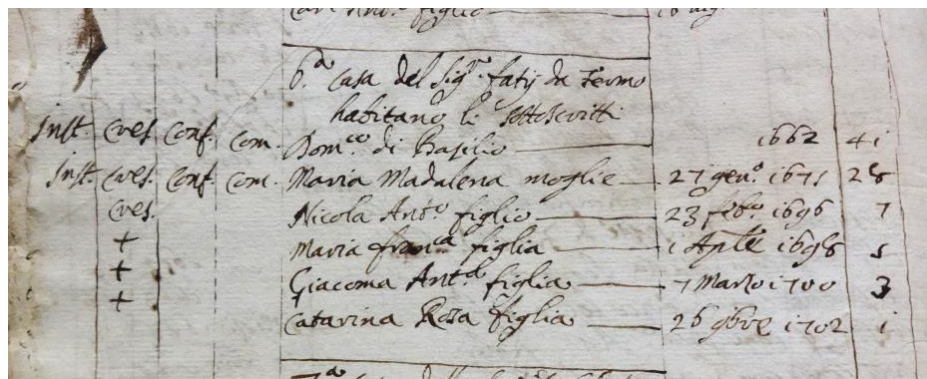 figlio
6.a Casa del Sig.r fatij da Fermo
habitano li sottoscritti
Inst. Cres. Conf. Com. Dom.co di Basilio 1662 41
Inst. Cres. Conf. Com. Maria Madalena moglie 27 gen.o 1671 28
Cres. Nicola Ant.o figlio 23 feb.o 1696 7
+ Maria fran.ca figlia 1 Aple 1698 5
+ Giacoma Ant.a figlia 7 Marzo 1700 3
+ Catarina Rosa figlia 26 9bre 1702 1